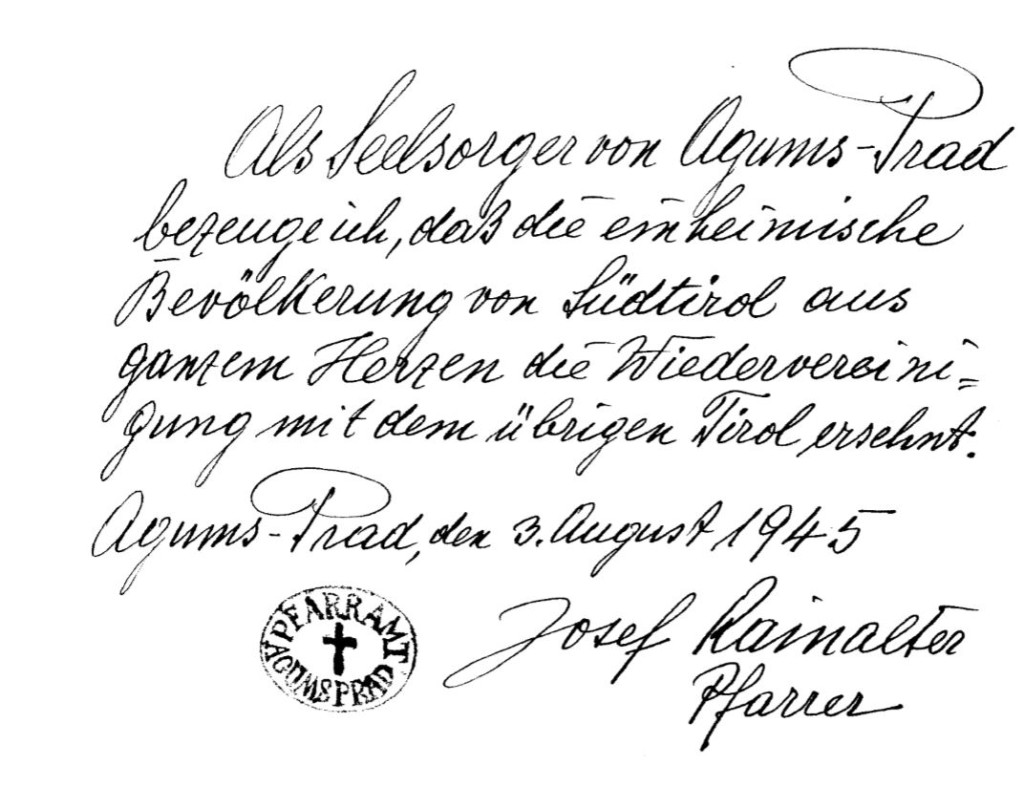 Als Seelsorger von Agums-Prad
bezeuge ich, daß die einheimische
Bevölkerung von Südtirol aus
ganzem Herzen die Wiedervereini=
gung mit dem übrigen Tirol ersehnt.
Agums-Prad, den 3. August 1945
PFARRAMT
AGUMS PRAD
Josef Rainalter
Pfarrer